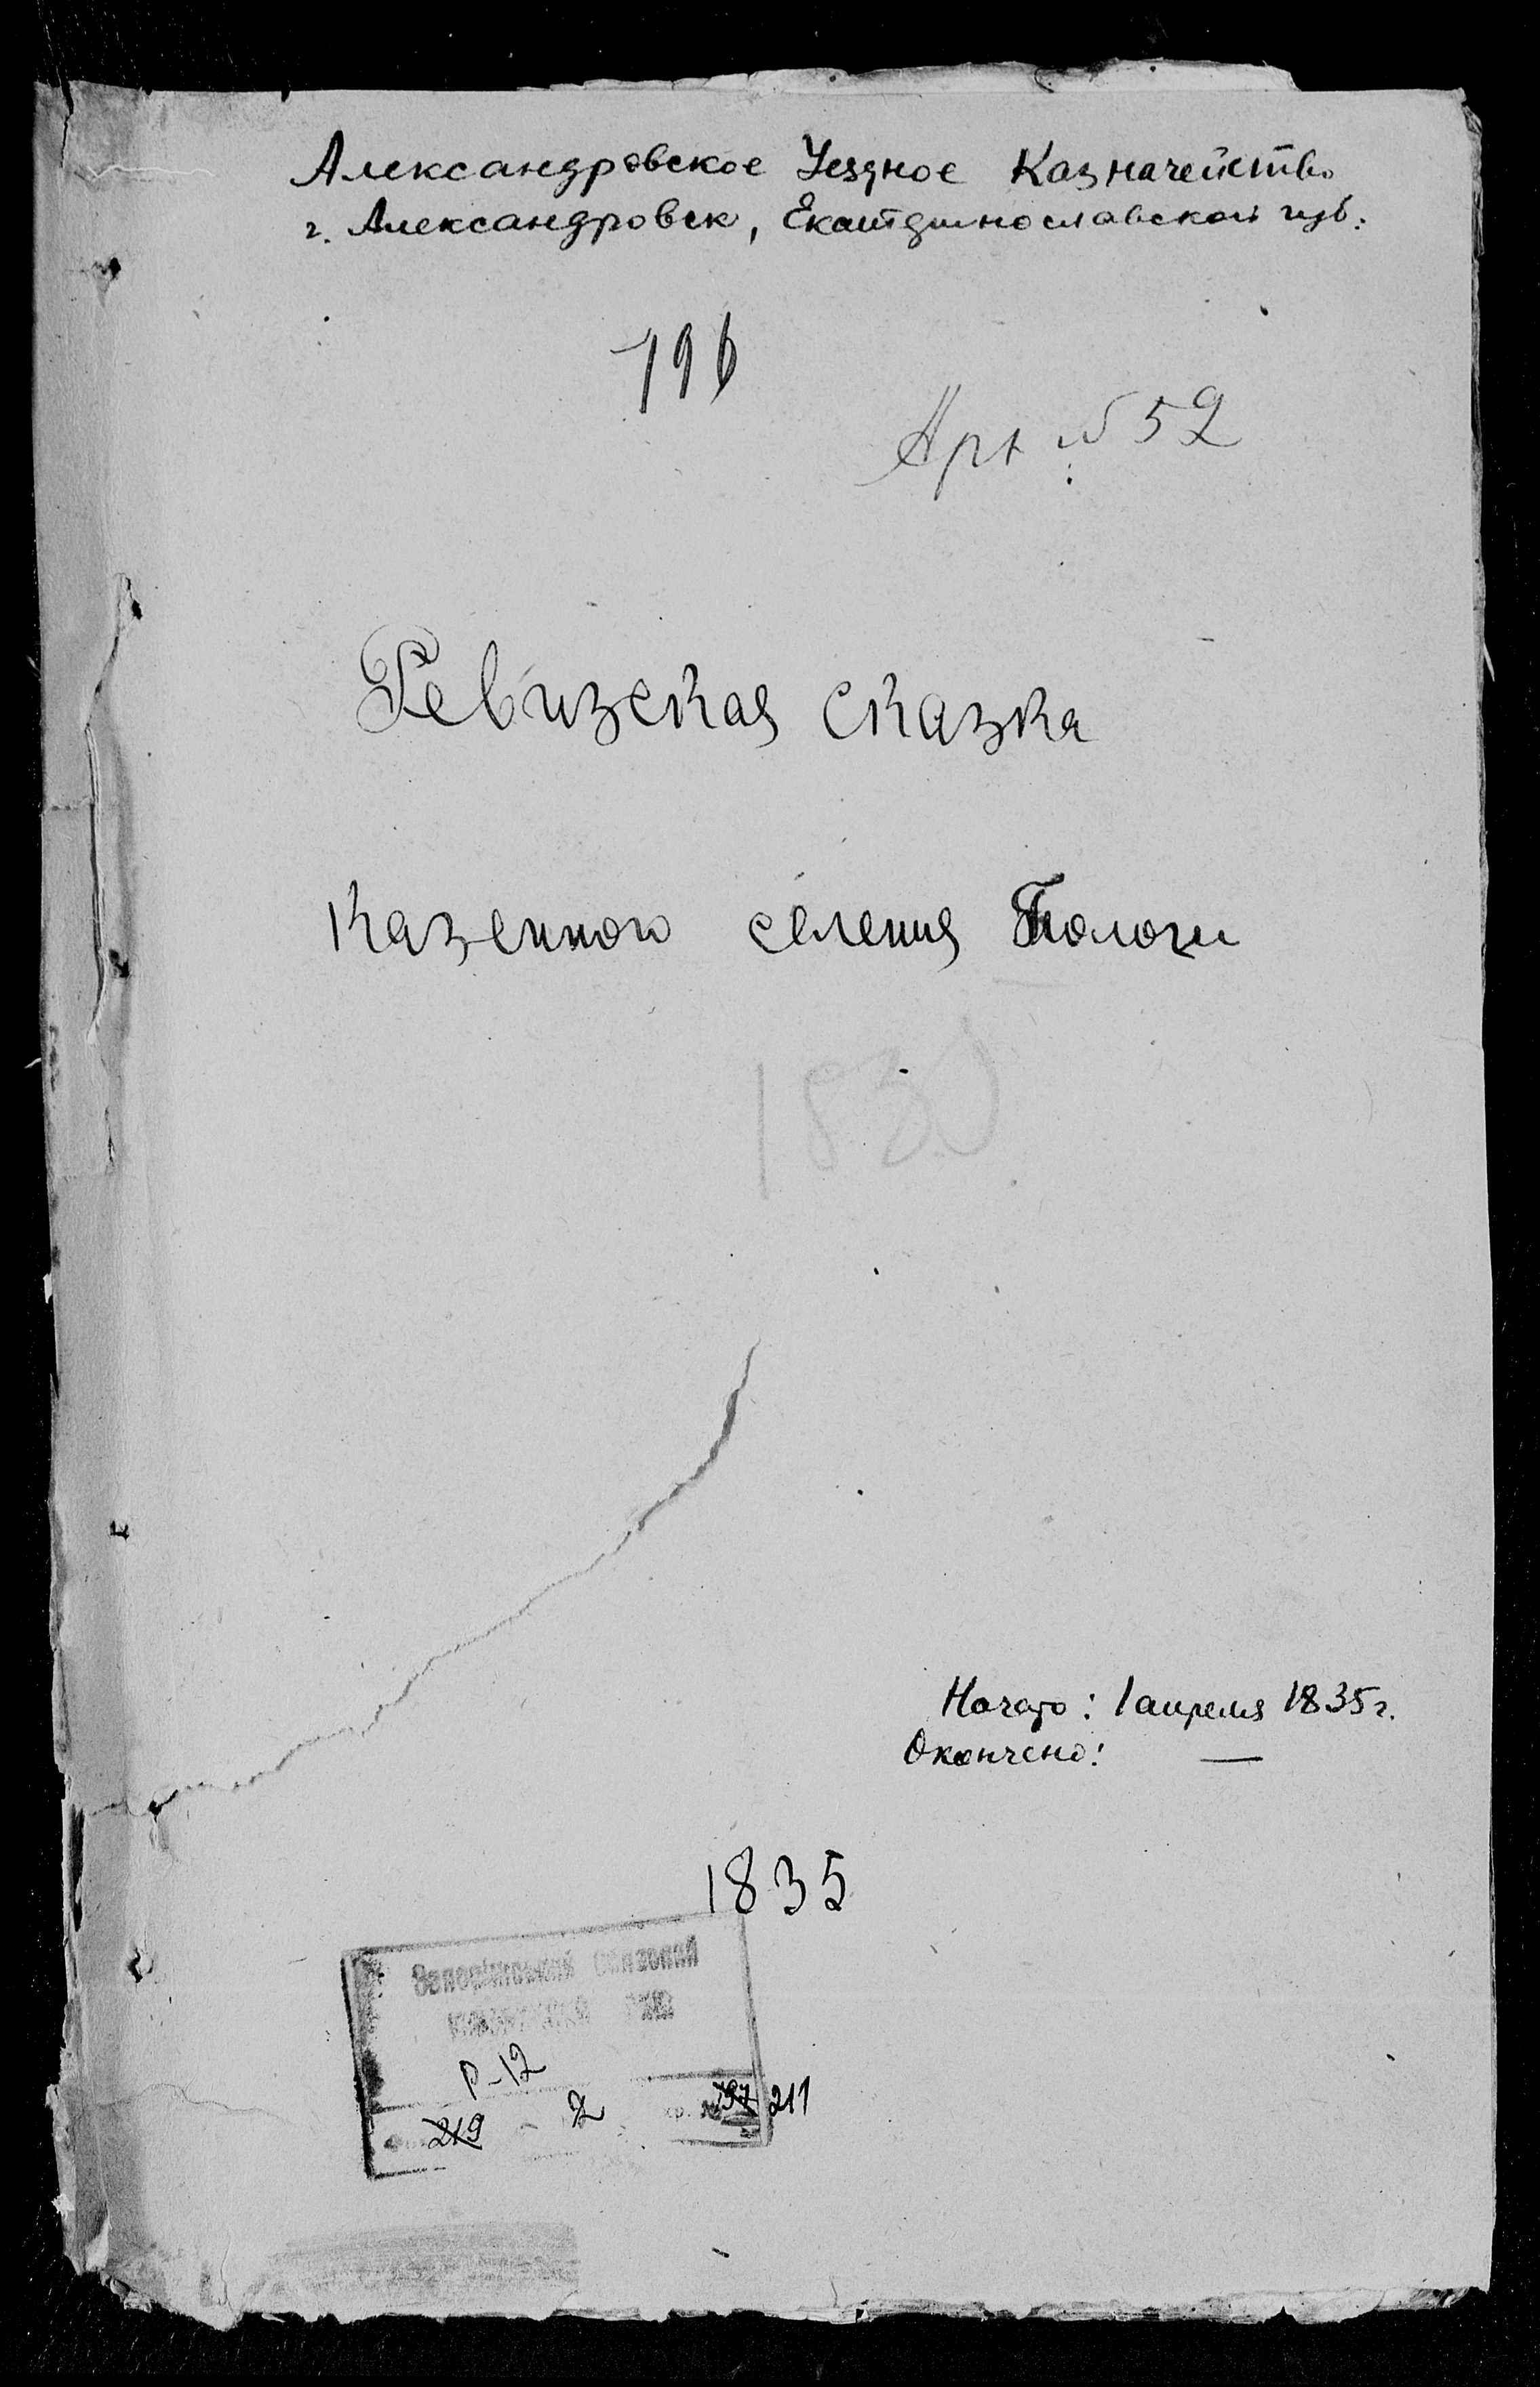 Александровское Уездное Казначейство
г. Александровск, Екатеринославской губ.
196
Арх № 52
Ревизская сказка
казенного селения Пологи
1830
Начато: 1 апреля 1835 г.
Окончено: —
1835
Запорізький обласний
Р-12
219 - 2 797 211